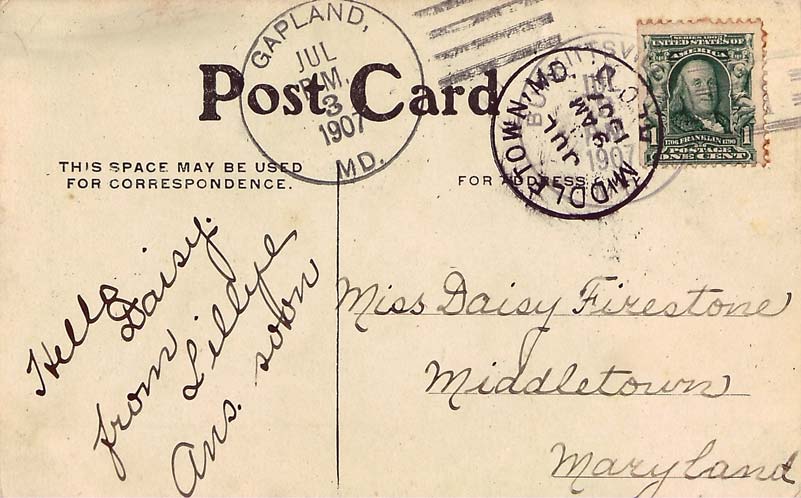 Post Card
GAPLAND,
JUL
3
P.M.
1907
MD.
MIDDLETOWN, MD.
JUL
AM
1907
1907
SERIES 1902
UNITED STATES OF
AMERICA
1706 FRANKLIN 1790
POSTAGE
1 ONE CENT 1
THIS SPACE MAY BE USED
FOR CORRESPONDENCE.
FOR ADDRESS
Hello
Daisy.
from
Lillye
Ans. soon
Miss Daisy Firestone
Middletown
Maryland